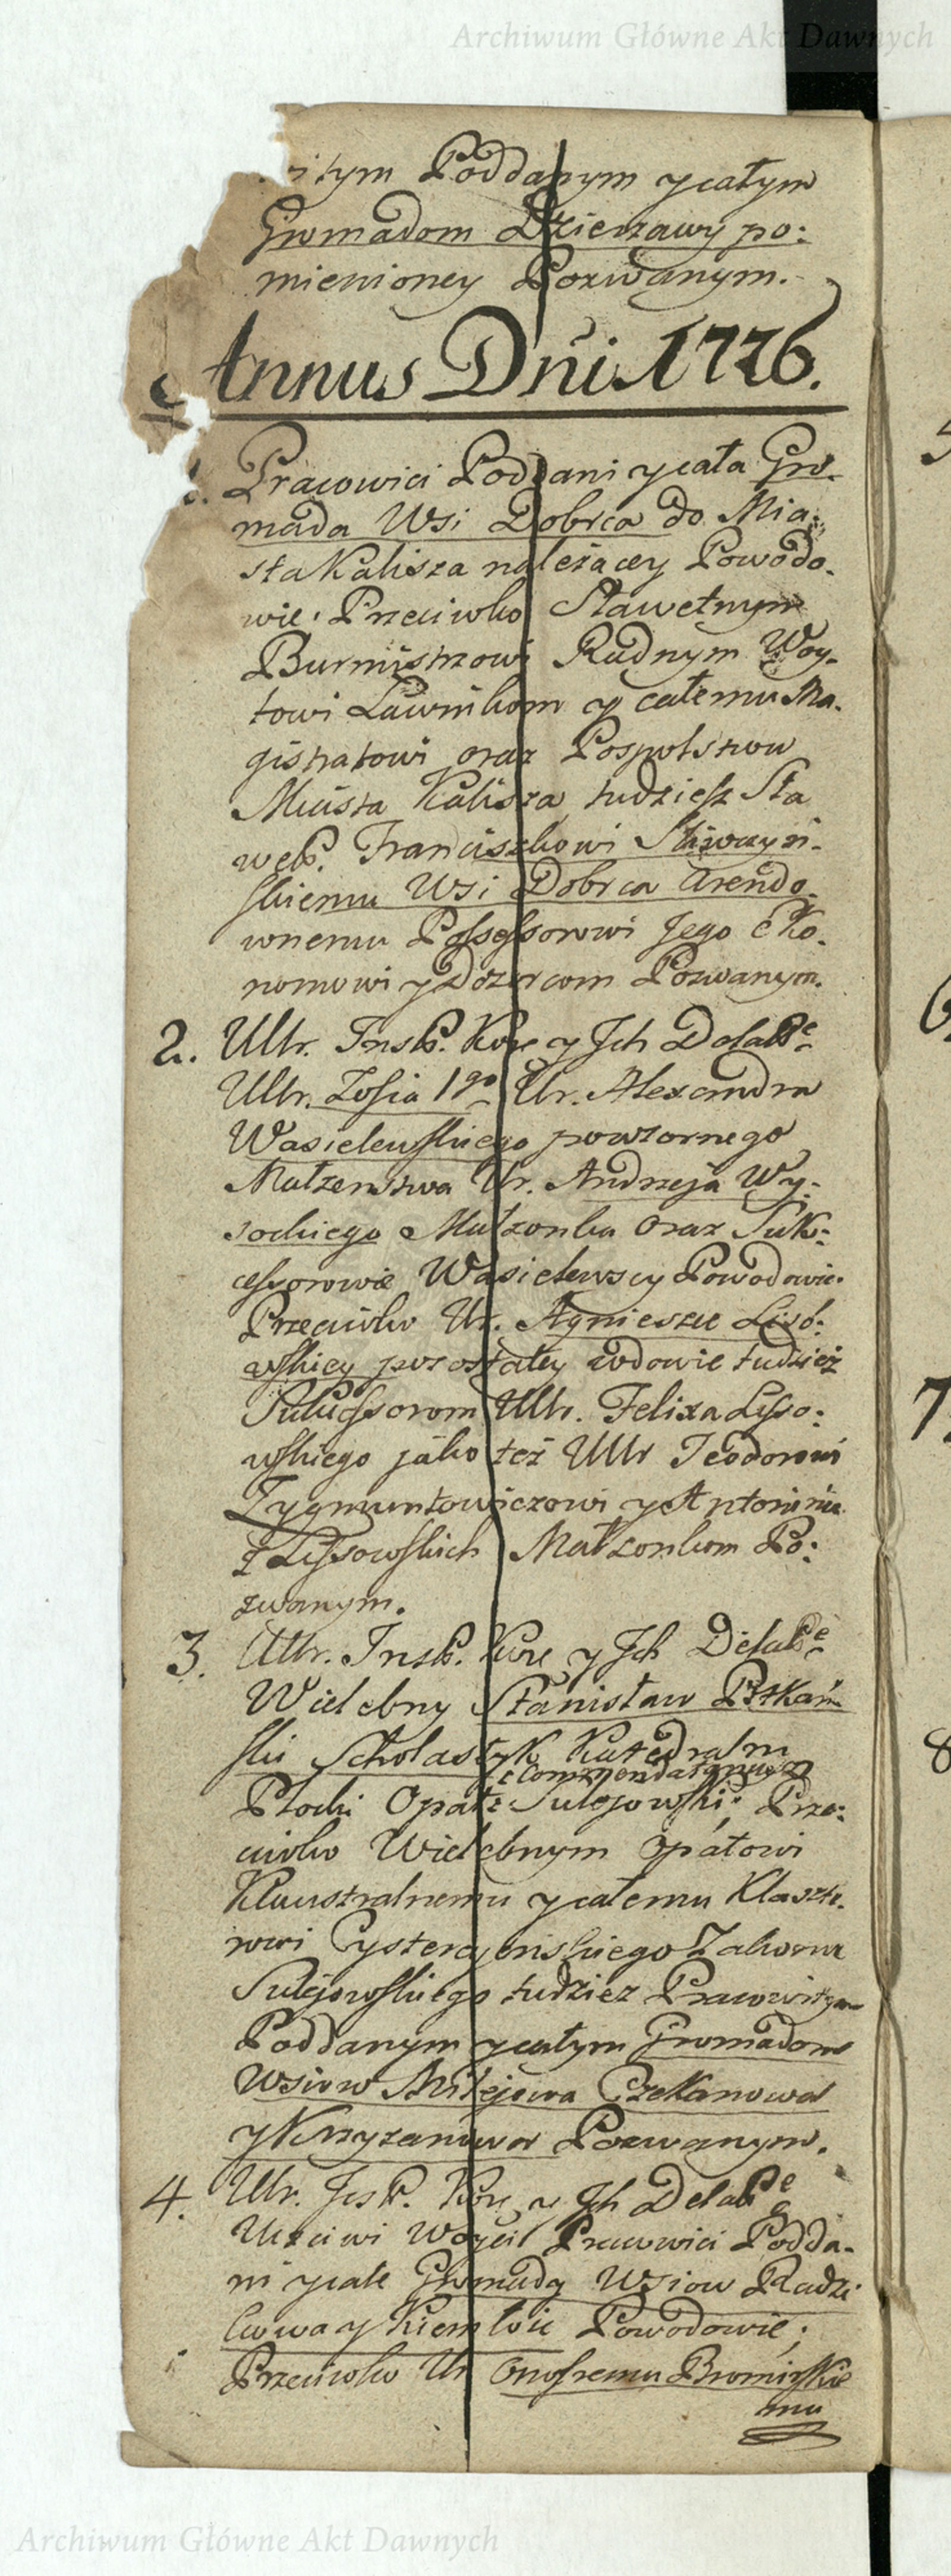 Archiwum Główne Akt Dawnych
itym Poddanym y całym
Gromadom Dzierzawy po:
mienioney Pozwanym.
Annus Dni 1776.
1. Pracowici Poddani y cała Gro:
mada Wsi Dobrca do Mia:
sta Kalisza należącey Powodo:
wie. Przeciwko Sławetnym
Burmistrzowi Radnym Woy:
towi Ławnikom y całemu Ma:
gistratowi oraz Pospolstwu
Miasta Kalisza tudziesz Sła
Franciszkowi
skiemu Wsi Dobrca Arendo:
wnemu Possessorowi Jego Eko:
nomowi y Dozorcom Pozwanym.
2. Ullr. Inst. Kore y Jch Delat
Ullr. Zofia 1go Ur. Alexandra
Wasielewskiego powtornego
Małzenstwa Ur. Andrzeja Wy:
sockiego Małzonka oraz Suk:
cessorowie Wasielewscy Powodowie.
Przeciwko Ur. Agnieszce Liso:
wskiey pozostałey wdowie tudzież
Sukcessorom Ullr. Felixa Lysso:
wskiego jako też Ullr Teodorowi
Zygmuntowiczowi y Antoninie
z Lyssowskich Małzonkom Po:
zwanym.
3. Ullr. Inst. Kore y Jch Delat
Wielebny Stanisław
ski Scholastyk Katedralny
Commendataryusz
Płocki Opat Sulejowski; Prze:
ciwko Wielebnym Opatowi
Klaustralnemu y całemu Klaszto:
rowi Cystercyenskiego Zakonu
Sulejowskiego tudziez Pracowitym
Poddanym y całym Gromadom
Wsiow Milejowa Czekanowa
y Krzyzanowa Pozwanym.
4. Ullr. Jnst. Kore y Jch Delat
Uczciwi Woyci Pracowici Podda:
ni y całe Gromady Wsiow Radzi
kowa y Powodowie;
Przeciwko Ur Onofremu Bromirskie
mu
Archiwum Główne Akt Dawnych